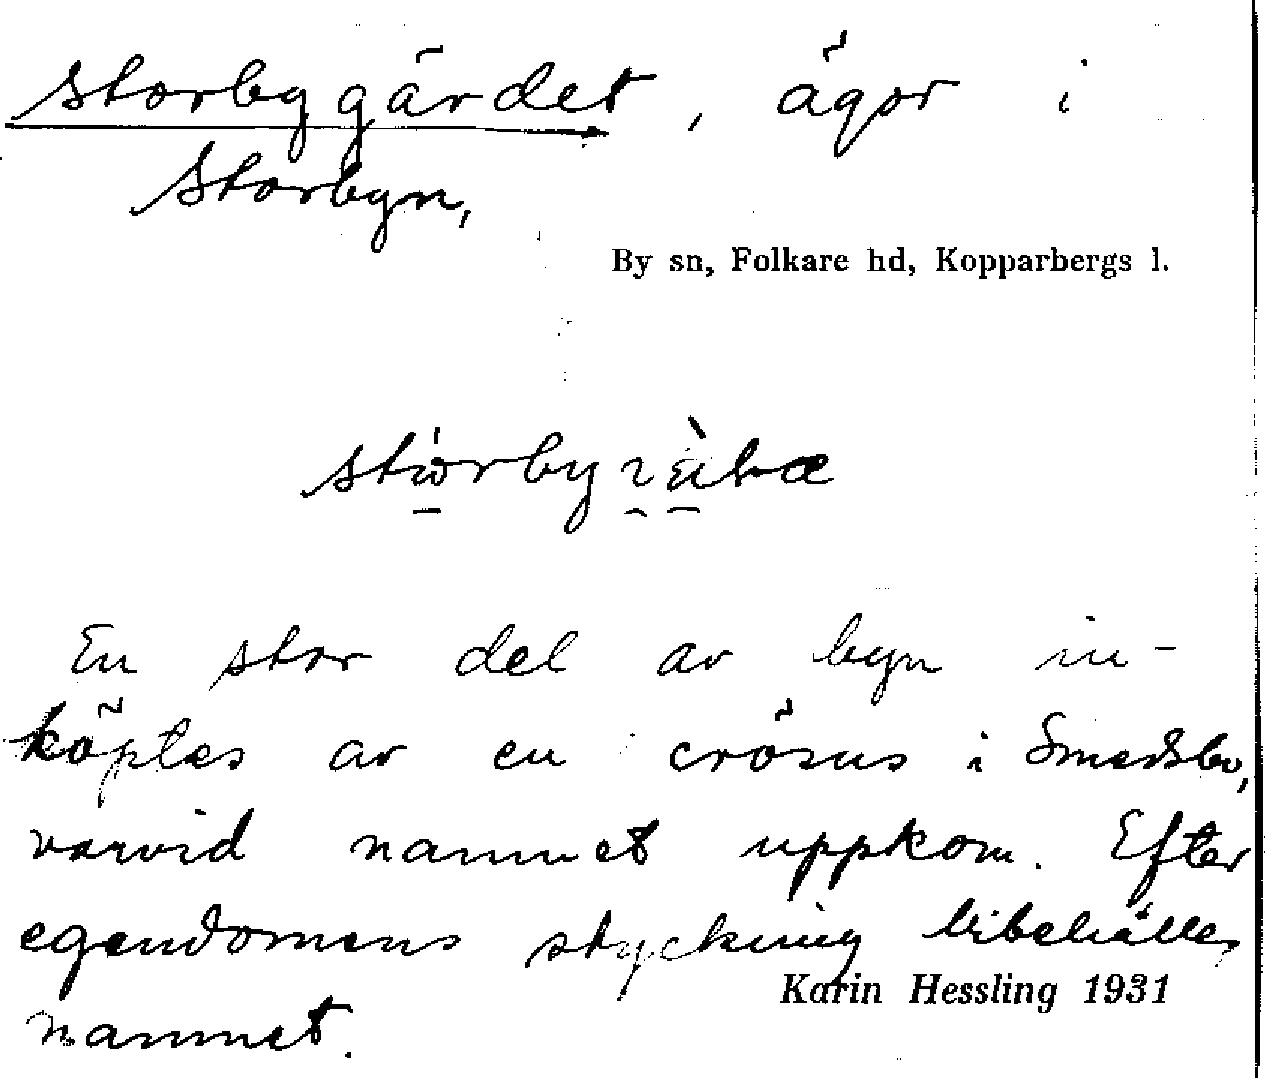 Storbygärdet, ägor i
Storbyn,
By sn, Folkare hd, Kopparbergs l.
En stor del av byn in-
köptes av en crösus i Smedsbo,
varvid namnet uppkom. Efter
egendomens styckning bibehålles
namnet.
Karin Hessling 1931